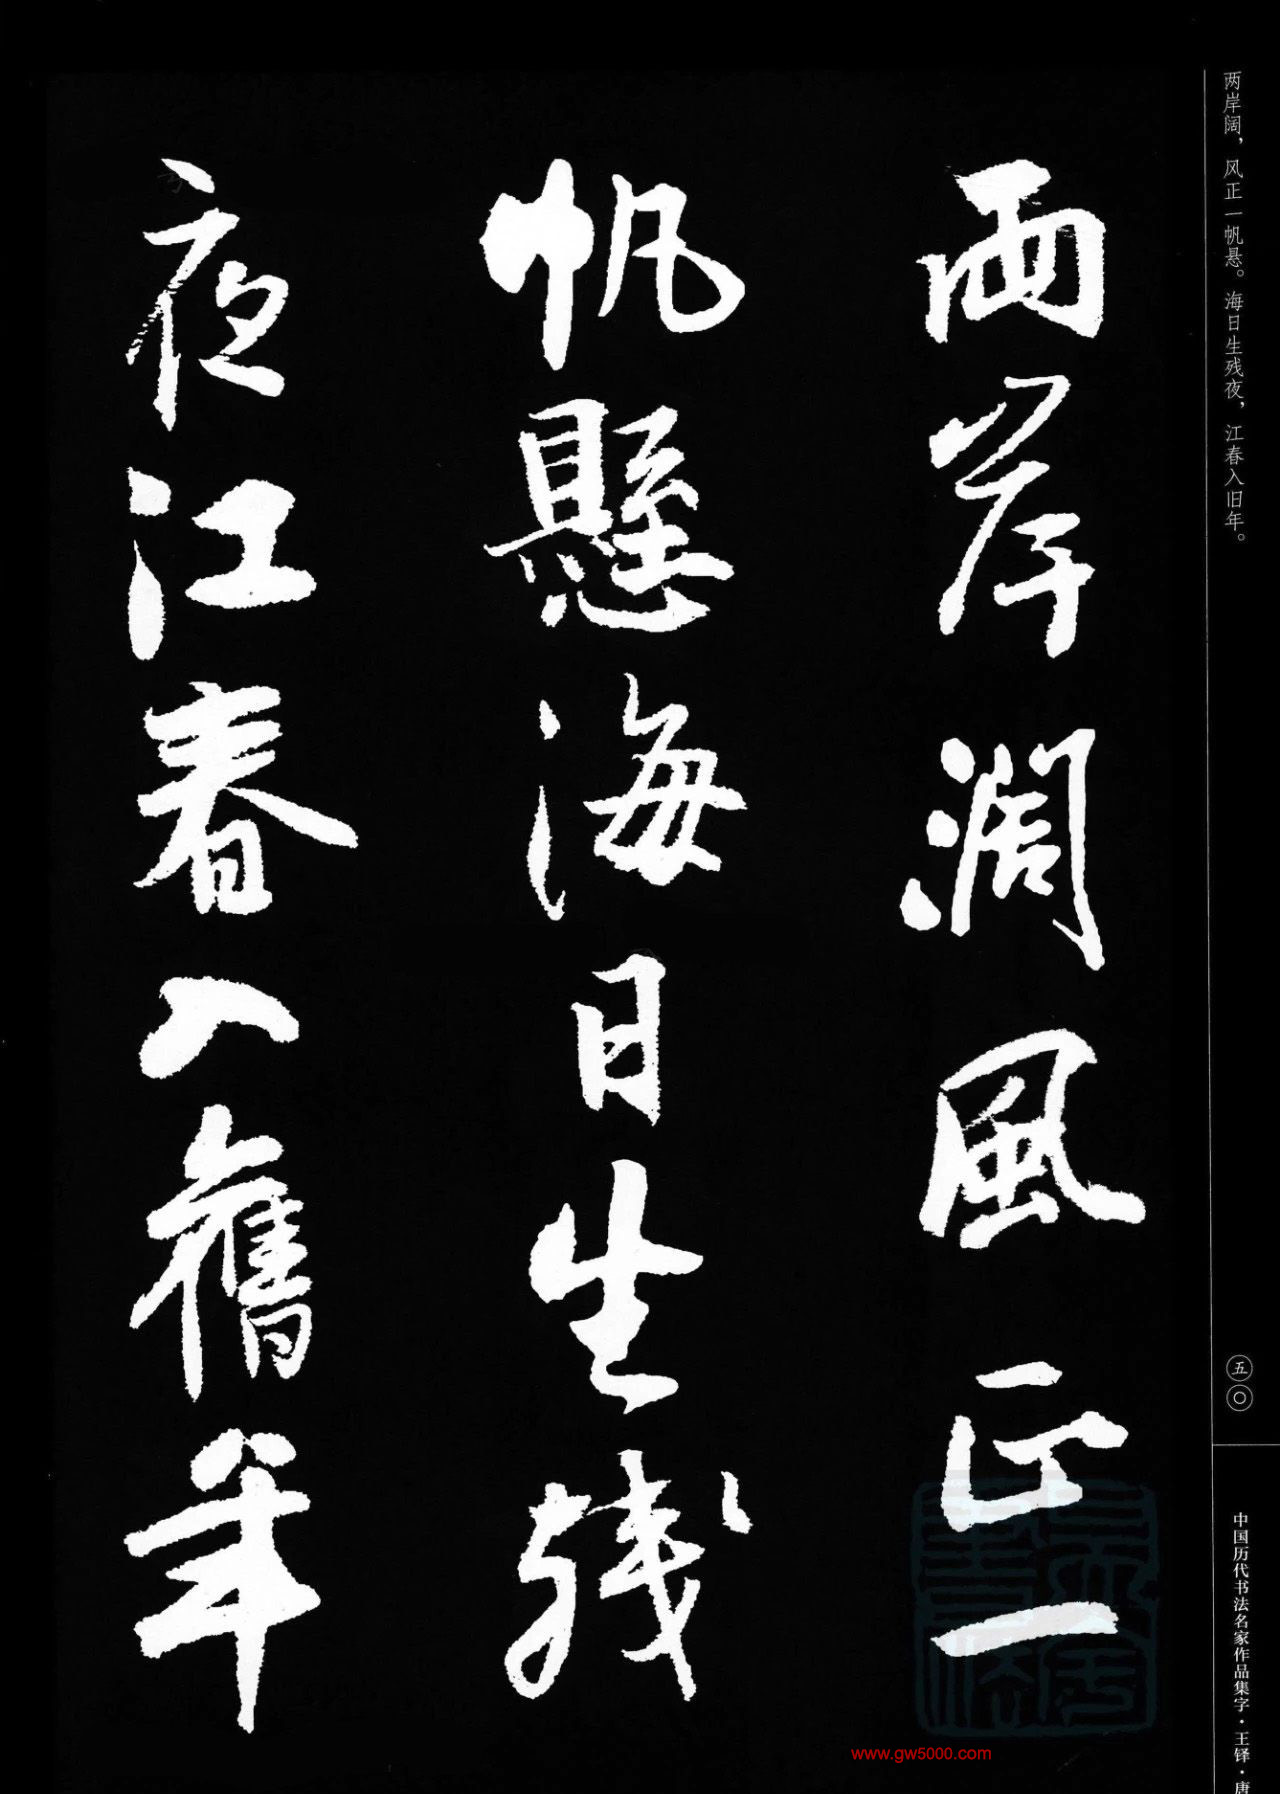 两岸阔，风正一帆悬。海日生残夜，江春入旧年。
兩岸濶風正一
帆懸海日生残
夜江春入舊年
五〇
中国历代书法名家作品集字·王铎·唐
www.gw5000.com